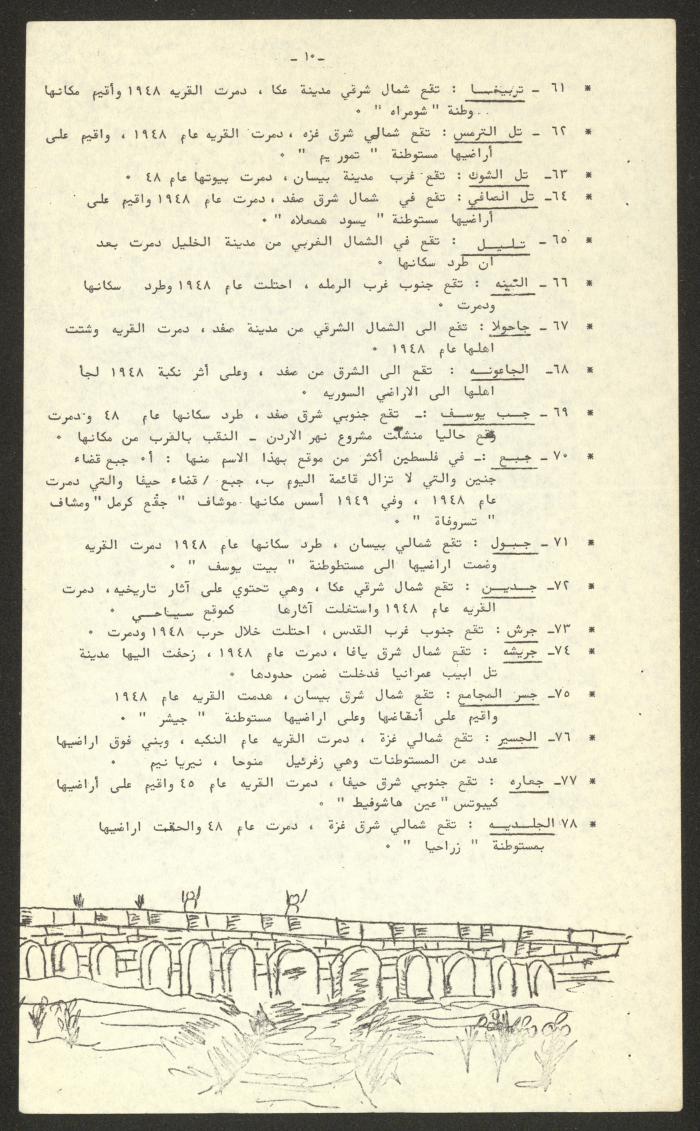 - ١٠ -
* ٦١ - تربيخا : تقع شمال شرقي مدينة عكا ، دمرت القريه ١٩٤٨ وأقيم مكانها
وطنة " شومراه " ٠
* ٦٢ - تل الترمس : تقع شمالي شرق غزه ، دمرت القريه عام ١٩٤٨ ، واقيم على
أراضيها مستوطنة " تمور يم " ٠
* ٦٣- تل الشوك : تقع غرب مدينة بيسان ، دمرت بيوتها عام ٤٨ ٠
* ٦٤- تل الصافي : تقع في شمال شرق صفد ، دمرت عام ١٩٤٨ واقيم على
أراضيها مستوطنة " يسود همعلاه " ٠
* ٦٥ - تليل : تقع في الشمال الغربي من مدينة الخليل دمرت بعد
ان طرد سكانها ٠
* ٦٦ - التينه : تقع جنوب غرب الرمله ، احتلت عام ١٩٤٨ وطرد سكانها
ودمرت ٠
* ٦٧ - جاحولا : تقع الى الشمال الشرقي من مدينة صفد ، دمرت القريه وشتت
اهلها عام ١٩٤٨ ٠
* ٦٨- الجاعونه : تقع الى الشرق من صفد ، وعلى أثر نكبة ١٩٤٨ لجأ
اهلها الى الاراضي السوريه ٠
* ٦٩ - جب يوسف :- تقع جنوبي شرق صفد ، طرد سكانها عام ٤٨ ودمرت
وتقع حاليا منشآت مشروع نهر الاردن - النقب بالقرب من مكانها ٠
* ٧٠ - جبع :- في فلسطين أكثر من موقع بهذا الاسم منها : أ٠ جبع قضاء
جنين والتي لا تزال قائمة اليوم ب، جبع / قضاء حيفا والتي دمرت
عام ١٩٤٨ ، وفي ١٩٤٩ أسس مكانها موشاف " جقع كرمل " ومشاف
" تسروفاة " ٠
* ٧١ - جبول : تقع شمالي بيسان ، طرد سكانها عام ١٩٤٨ دمرت القريه
وضمت اراضيها الى مستطوطنة " بيت يوسف " ٠
* ٧٢- جدين : تقع شمال شرقي عكا ، وهي تحتوي على آثار تاريخيه، دمرت
القريه عام ١٩٤٨ واستغلت آثارها كموقع سياحي ٠
* ٧٣- جرش : تقع جنوب غرب القدس، احتلت خلال حرب ١٩٤٨ ودمرت ٠
* ٧٤- جريشه : تقع شمال شرق يافا ، دمرت عام ١٩٤٨ ، زحفت اليها مدينة
تل ابيب عمرانيا فدخلت ضمن حدودها ٠
* ٧٥- جسر المجامع : تقع شمال شرق بيسان، هدمت القريه عام ١٩٤٨
واقيم على أنقاضها وعلى اراضيها مستوطنة " جيشر " ٠
* ٧٦- الجسير : تقع شمالي غزة ، دمرت القريه عام النكبه ، وبني فوق اراضيها
عدد من المستوطنات وهي زفرئيل منوحا ، نيريا نيم ٠
* ٧٧- جعاره : تقع جنوبي شرق حيفا ، دمرت القريه عام ٤٥ واقيم على أراضيها
كيبوتس " عين هاشوفيط " ٠
* ٧٨ الجلديه : تقع شمالي شرق غزة ، دمرت عام ٤٨ والحقت اراضيها
بمستوطنة " زراحيا " ٠